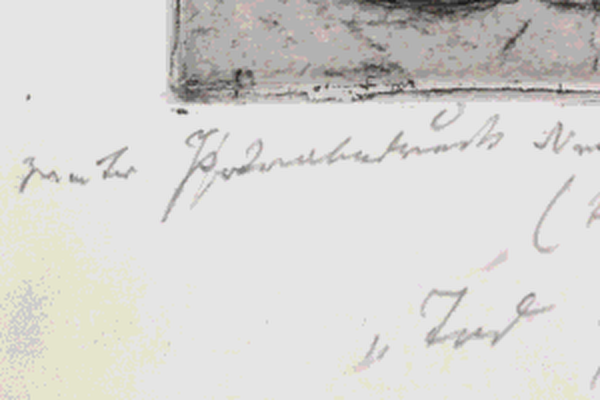 zweiter Probeabdruck
(
„ Tod